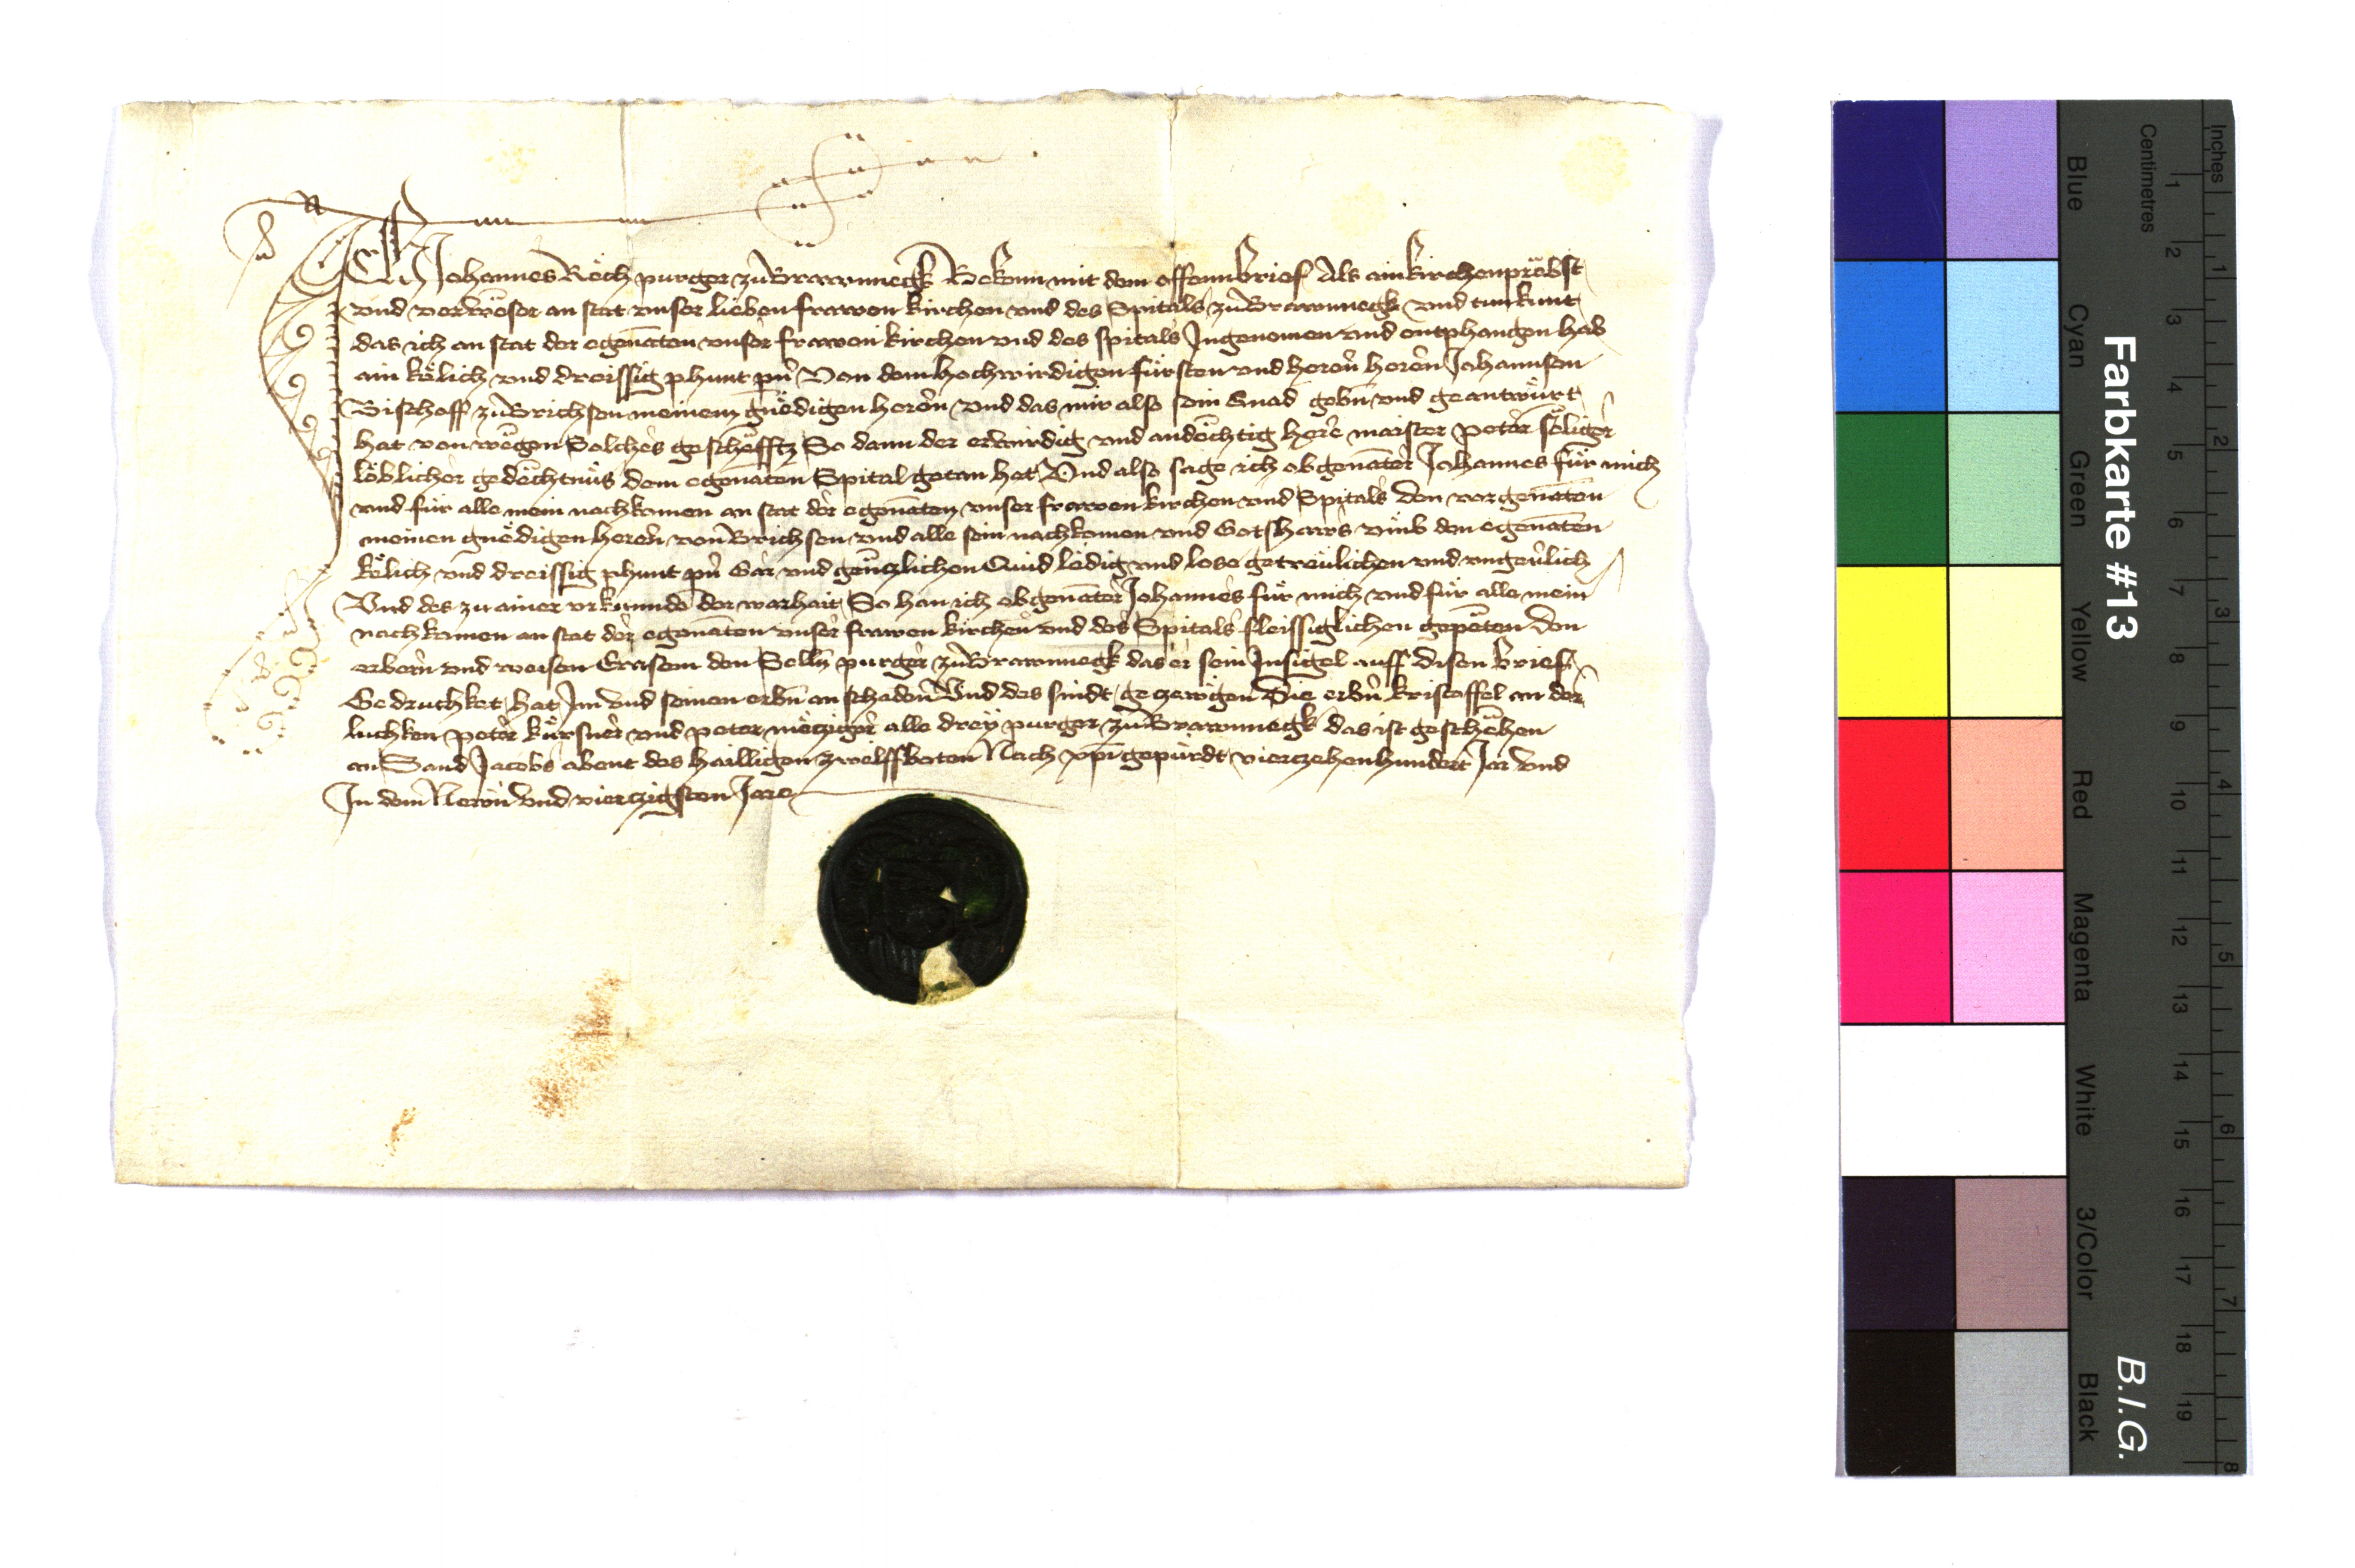 Ich Johannes Röch purger zů Brawnnegk Bekenn mit dem offenn brief Als ain kirchenpräbst
vnd verweser an stat vnser lieben frawen kirchen vnd des Spitals zů Brawnnegk vnd tun kunt
das ich an stat der egenāten vnser frawen kirchen vnd des spitals Ingenomen vnd entphangen hab
ain kölich vnd dreissig phunt pn̄ Von dem hochwirdigen fürsten vnd heren̄ heren̄ Johannsen
Bischoff zů Brichsen meinem gnëdigen heren̄ vnd das mir also sein Gnad gebn̄ vnd geantwürt
hat von wegen Solches geschefftz So dann der erwirdig vnd andëchtig here maister peter sëliger
löblicher gedëchtnüs dem egenāten Spital getan hat Vnd also sage ich obgenāter Johannes für mich
vnd für alle mein nachkomen an stat der egenāten vnser frawen kirchen vnd Spitals den vorgenāten
meinen gnëdigen heren̄ von Brichsen vnd alle sein nachkomen vnd Gotshaws vmb den egenāten
kölich vnd dreissig phunt pn̄ Gar vnd genczlichen Quid ledig vnd lose getreulichen vnd vngeu̇lich
Vnd des zu ainer vrkunnde der warhait So han ich obgenāter Johannes für mich vnd für alle mein
nachkomen an stat der egenāten vnser frawen kirchen vnd des Spitals fleissiglichen gepeten den
erbern̄ vnd weisen Erasem den Selln̄ purger zů Brawnnegk das er sein Insigel auff disen brief
Gedruchket hat Im vnd seinen erbn̄ an schaden Vnd des sindt geczewgen Die erbn̄ kristoffel an der
luchken peter kürsner vnd peter mëtziger alle drey purger zů Brawnnegk das ist geschëhen
an Sand Jacobs abent des hailligen zwelffboten Nach xp̄i gepürdt vierczehenhundert Jar vnd
In dem Newn̄ vnd vierczigsten Jare
Farbkarte #13
B.I.G.
Centimetres
Inches
Blue
Cyan
Green
Yellow
Red
Magenta
White
3/Color
Black
1 2 3 4 5 6 7 8 9 10 11 12 13 14 15 16 17 18 19
1 2 3 4 5 6 7 8